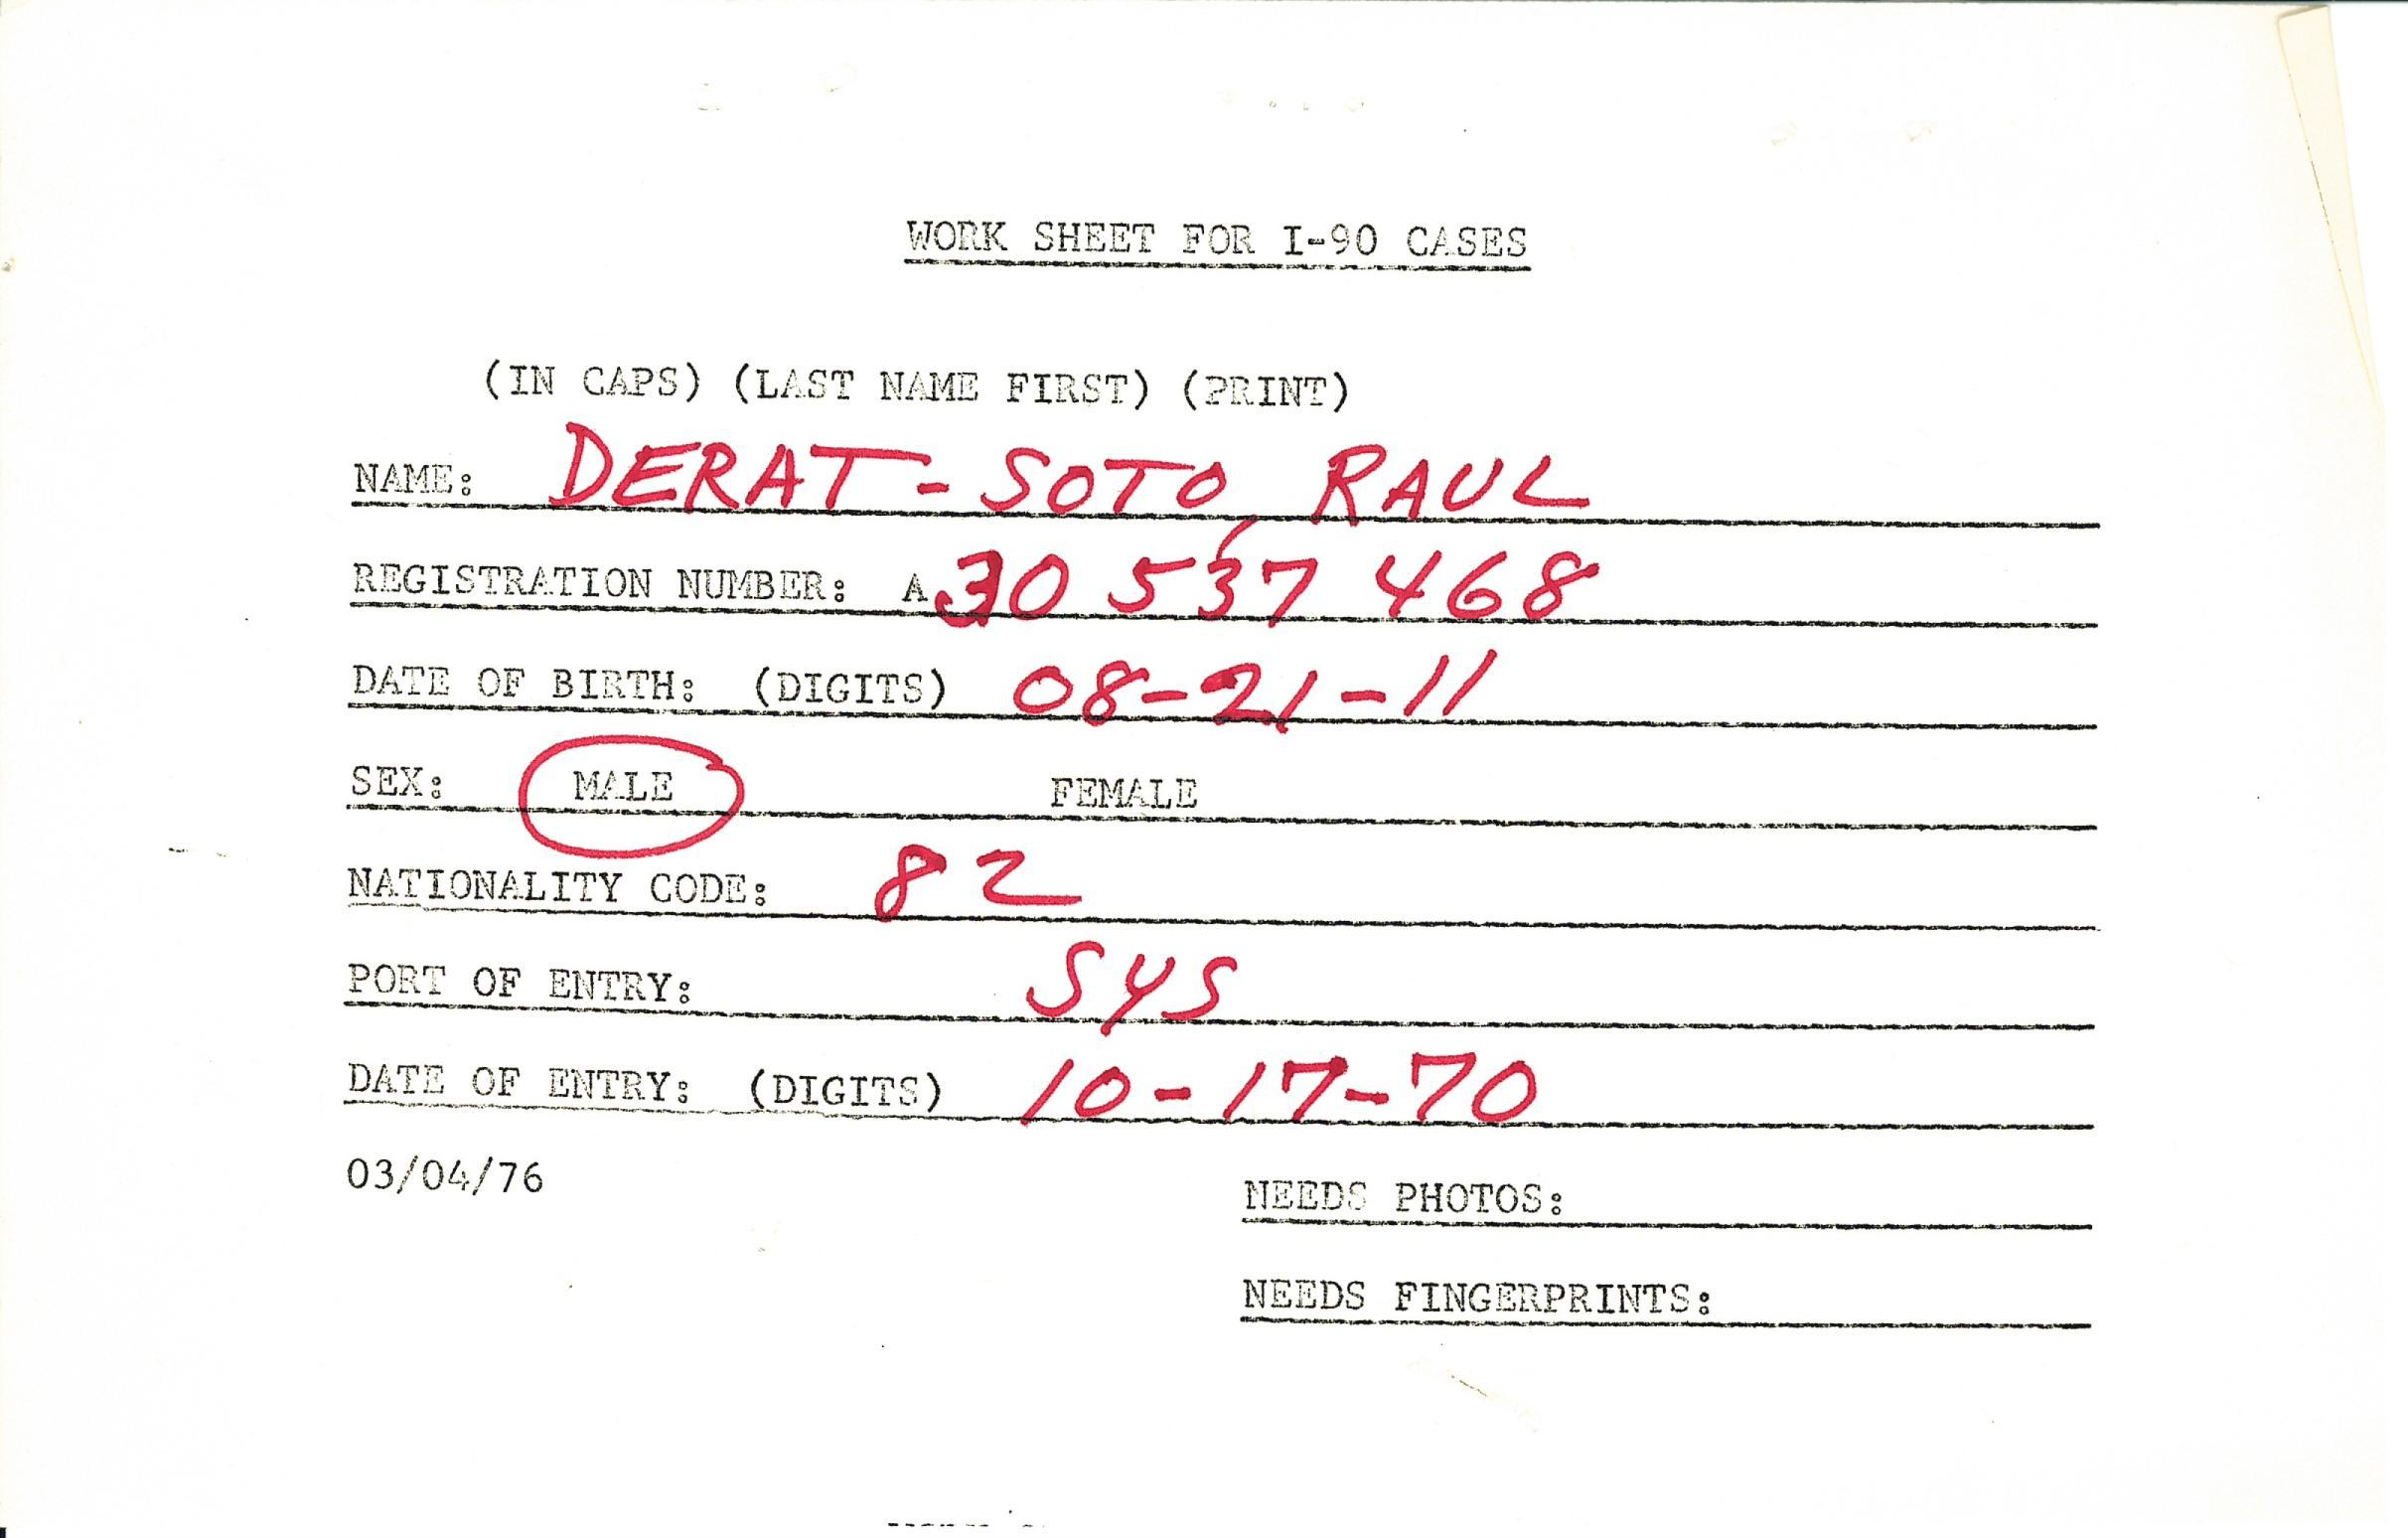 WORK SHEET FOR I-90 CASES
(IN CAPS) (LAST NAME FIRST) (PRINT)
NAME: DERAT-SOTO, RAUL
REGISTRATION NUMBER: A 30 537 468
DATE OF BIRTH: (DIGITS) 08-21-11
SEX: MALE FEMALE
NATIONALITY CODE: 82
PORT OF ENTRY: SYS
DATE OF ENTRY: (DIGITS) 10-17-70
03/04/76
NEEDS PHOTOS:
NEEDS FINGERPRINTS: